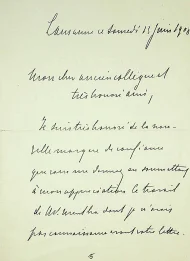 Lausanne ce Samedi 13 Juin 1908
Mon cher ancien collègue et
très honoré ami,
Je suis très honoré de la nou-
velle marque de confiance
que vous me donnez en soumettant
à mon appréciation le travail
de M. dont je n'avais
pas connaissance avant votre lettre.